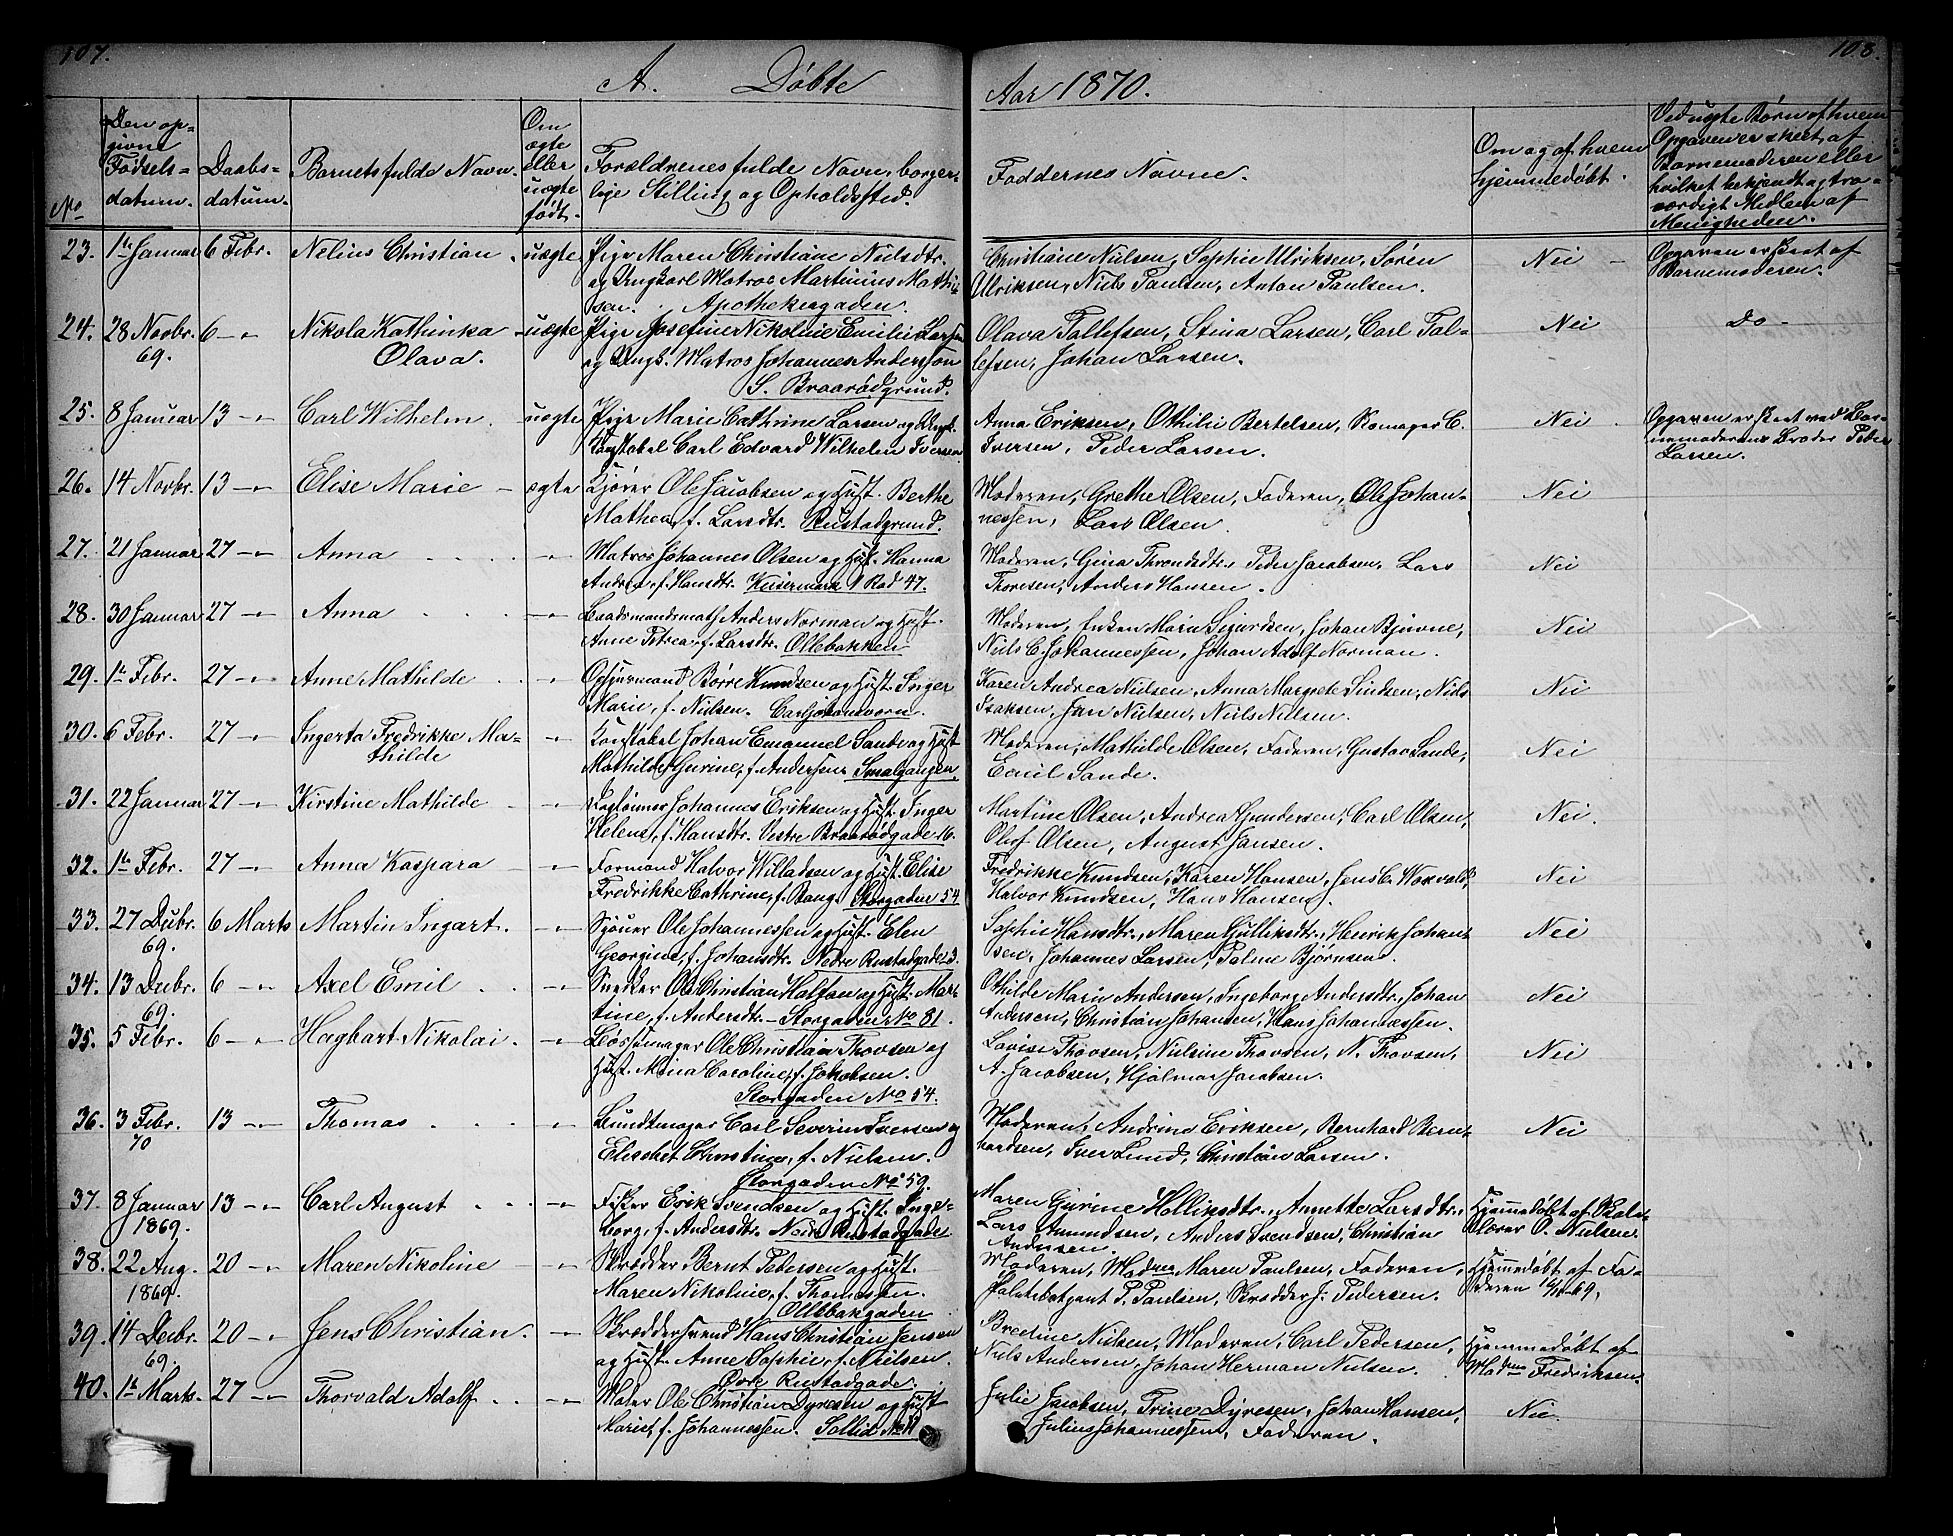 107.
A. Døbte
Aar 1870.
108.
No
Den op=
givne
Fødsels=
datum.
Daabs=
datum.
Barnets fulde Navn.
Om
ægte
eller
uægte
født.
Forældrenes fulde Navn, borger=
lige Stilling og Opholdssted.
Faddernes Navne.
Om og af hvem
hjemmedøbt.
Ved uægte Børn af hvem
Opgaven er skeet, af
Barnemoderen eller
hvilket bekjendt og tro=
værdigt Medlem af
Menigheden.
23. 1te Januar 6 Febr. Nelius Christian uægte Pige Maren Christiane Nielsdtr.
og Ungkarl Matros Martinius Mathi=
sen. Apothekergaden.
Christiane Nielsen, Sophie Ulriksen, Søren
Ulriksen, Niels Paulsen, Anton Paulsen.
Nei
Opgaven er skeet af
Barnemoderen.
24. 28 Novbr. 6 –"– Nikola Kathinka uægte Pige Josefine Nikoline Emilie Larsen
69. Olava. og Ungk. Matros Johannes Anderssen
S. Braarødgrund.
Olava Tallefsen, Stina Larsen, Carl Tal=
lefsen, Johan Larsen.
Nei
Do
25. 8 Januar 13 –"– Carl Wilhelm. uægte Pige Marie Cathrine Larsen og Ungk.
Konstabel Carl Edvard Wilhelm Iversen
Anna Eriksen, Othilie Bertelsen, Skomager C.
Iversen, Peder Larsen.
Nei
Opgaven er skeet ved Bar=
nemoderens Broder Peder
Larsen.
26. 14 Novbr. 13 –"– Elise Marie ægte Kjører Ole Jacobsen og Hust. Berthe
Mathea, f. Larsdtr. Rustadgrund.
Moderen, Grethe Olsen, Faderen, Ole Johan=
nessen, Lars Olsen.
Nei
27. 21 Januar 27 –"– Anna –"– Matros Johannes Olsen og Hust. Hanna
Andrea, f. Hansdtr. Keisermark 1 Rad 47.
Moderen, Gina Throndsdtr., Peder Jacobsen, Lars
Thoresen, Anders Hansen.
Nei
28. 30 Januar 27 –"– Anna –"– Baadsmandsmath Anders Norman og Hust.
Anne Petrea, f. Larsdtr. Ollebakken
Moderen, Enken Maria Sigurdsen, Johan Bjurne,
Niels C. Johannessen, Johan Adolf Norman.
Nei
29. 1te Febr. 27 –"– Anne Mathilde –"– Opsynsmand Børre Knudsen og Hust. Inger
Marie, f. Nielsen. Carljohansvorn.
Karen Andrea Nielsen, Anna Margrete Lindsen, Niels
Isaksen, Jan Nielsen, Niels Nielsen.
Nei
30. 6 Febr. 27 –"– Ingerta Fredrikke Ma= –"– Konstabel Johan Emanuel Sande og Hust.
thilde Mathilde Gurine, f. Andersen. Smalgangen.
Moderen, Mathilde Olsen, Faderen, Gustav Sande,
Emil Sande.
Nei
31. 22 Januar 27 –"– Kirstine Mathilde –"– Daglønner Johannes Eriksen og Hust. Inger
Helene, f. Hansdtr. Vestre Braarødgade 16.
Martine Olsen, Andrea Gundersen, Carl Olsen,
Oluf Olsen, August Jansen.
Nei.
32. 1te Febr. 27 –"– Anna Kaspara –"– Formand Halvor Willadsen og Hust. Elise
Fredrikke Cathrine, f. Bang. Storgaden 54.
Fredrikke Knudsen, Karen Hansen, Jens C. Woxvold,
Halvor Knudsen, Hans Hansen.
Nei
33. 27 Debr. 6 Marts Martin Ingart. –"– Sjouer Ole Johannessen og Hust. Elen
69. Georgine, f. Johansdtr. Nedre Rustadgade 3.
Sophie Hansdtr., Maren Gulliksdtr., Henrik Johan=
sen, Johannes Larsen, Palme Bjørnsen.
Nei
34. 13 Debr. 6 –"– Axel Emil –"– Snedker Ole Christian Halfsen og Hust. Mar=
69. tine, f. Andersdtr. – Storgaden No 81.
Othilde Marie Andersen, Ingeborg Andersdtr., Johan
Andersen, Christian Johansen, Hans Johannessen.
Nei
35. 5 Febr. 6 –"– Hagbart Nikolai. –"– Bøssemager Ole Christian Thovsen og
Hust. Mina Caroline, f. Jakobsen.
Storgaden No 54.
Lovise Thovsen, Nielsine Thovsen, N. Thovsen,
A. Jacobsen, Hjalmar Jacobsen.
Nei
36. 3 Febr. 13 –"– Thomas –"– Bundtmager Carl Severin Iversen og
70 Elisabet Christine, f. Nielsen.
Storgaden No 59.
Moderen, Andrine Eriksen, Bernhard Bern=
hardsen, Iver Lund, Christian Larsen.
Nei
37. 8 Januar 13 –"– Carl August –"– Fisker Erik Svendsen og Hust. Inge=
1869. borg, f. Andersdtr. Nedre Rustadgade
Maren Gurine Holliksdtr., Annette Larsdtr.,
Lars Amundsen, Anders Svendsen, Christian
Andersen.
Hjemmedøbt af Skole=
lærer O. Nielsen.
38. 22 Aug. 20 –"– Maren Nikoline –"– Skrædder Bernt Pedersen og Hust.
1869. Maren Nikoline, f. Thomassen.
Ollebakgaden
Moderen, Madme Maren Paulsen, Faderen,
P. Paulsen, Skrædder J. Pedersen.
Hjemmedøbt af Fa=
deren
39. 14 Debr. 20 –"– Jens Christian. –"– Skræddersvend Hans Christian Jensen
69. og Hust. Anne Sophie, f. Nielsen.
Øvre Rustadgade.
Bredine Nielsen, Moderen, Carl Pedersen,
Niels Andersen, Johan Herman Nielsen.
Hjemmedøbt af
Madme Fredriksen.
40. 1te Mark. 27 –"– Thorvald Adolf –"– Maler Ole Christian Dyresen og Hust.
Marie, f. Johannessen. Sollid No 11
Julie Jacobsen, Trine Dyresen, Johan Hansen,
Julius Johannessen, Faderen.
Nei.